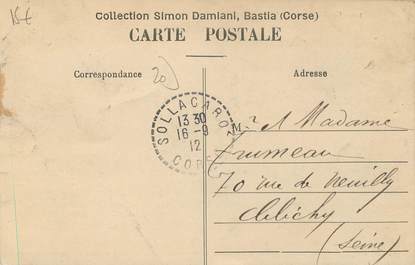 15€
Collection Simon Damiani, Bastia (Corse)
CARTE POSTALE
Correspondance
20
Adresse
SOLLACARO
13 30
16 - 9
12
CORSE
Mr & Madame
Trumeau
70 rue de Neuilly
Clichy
(Seine)